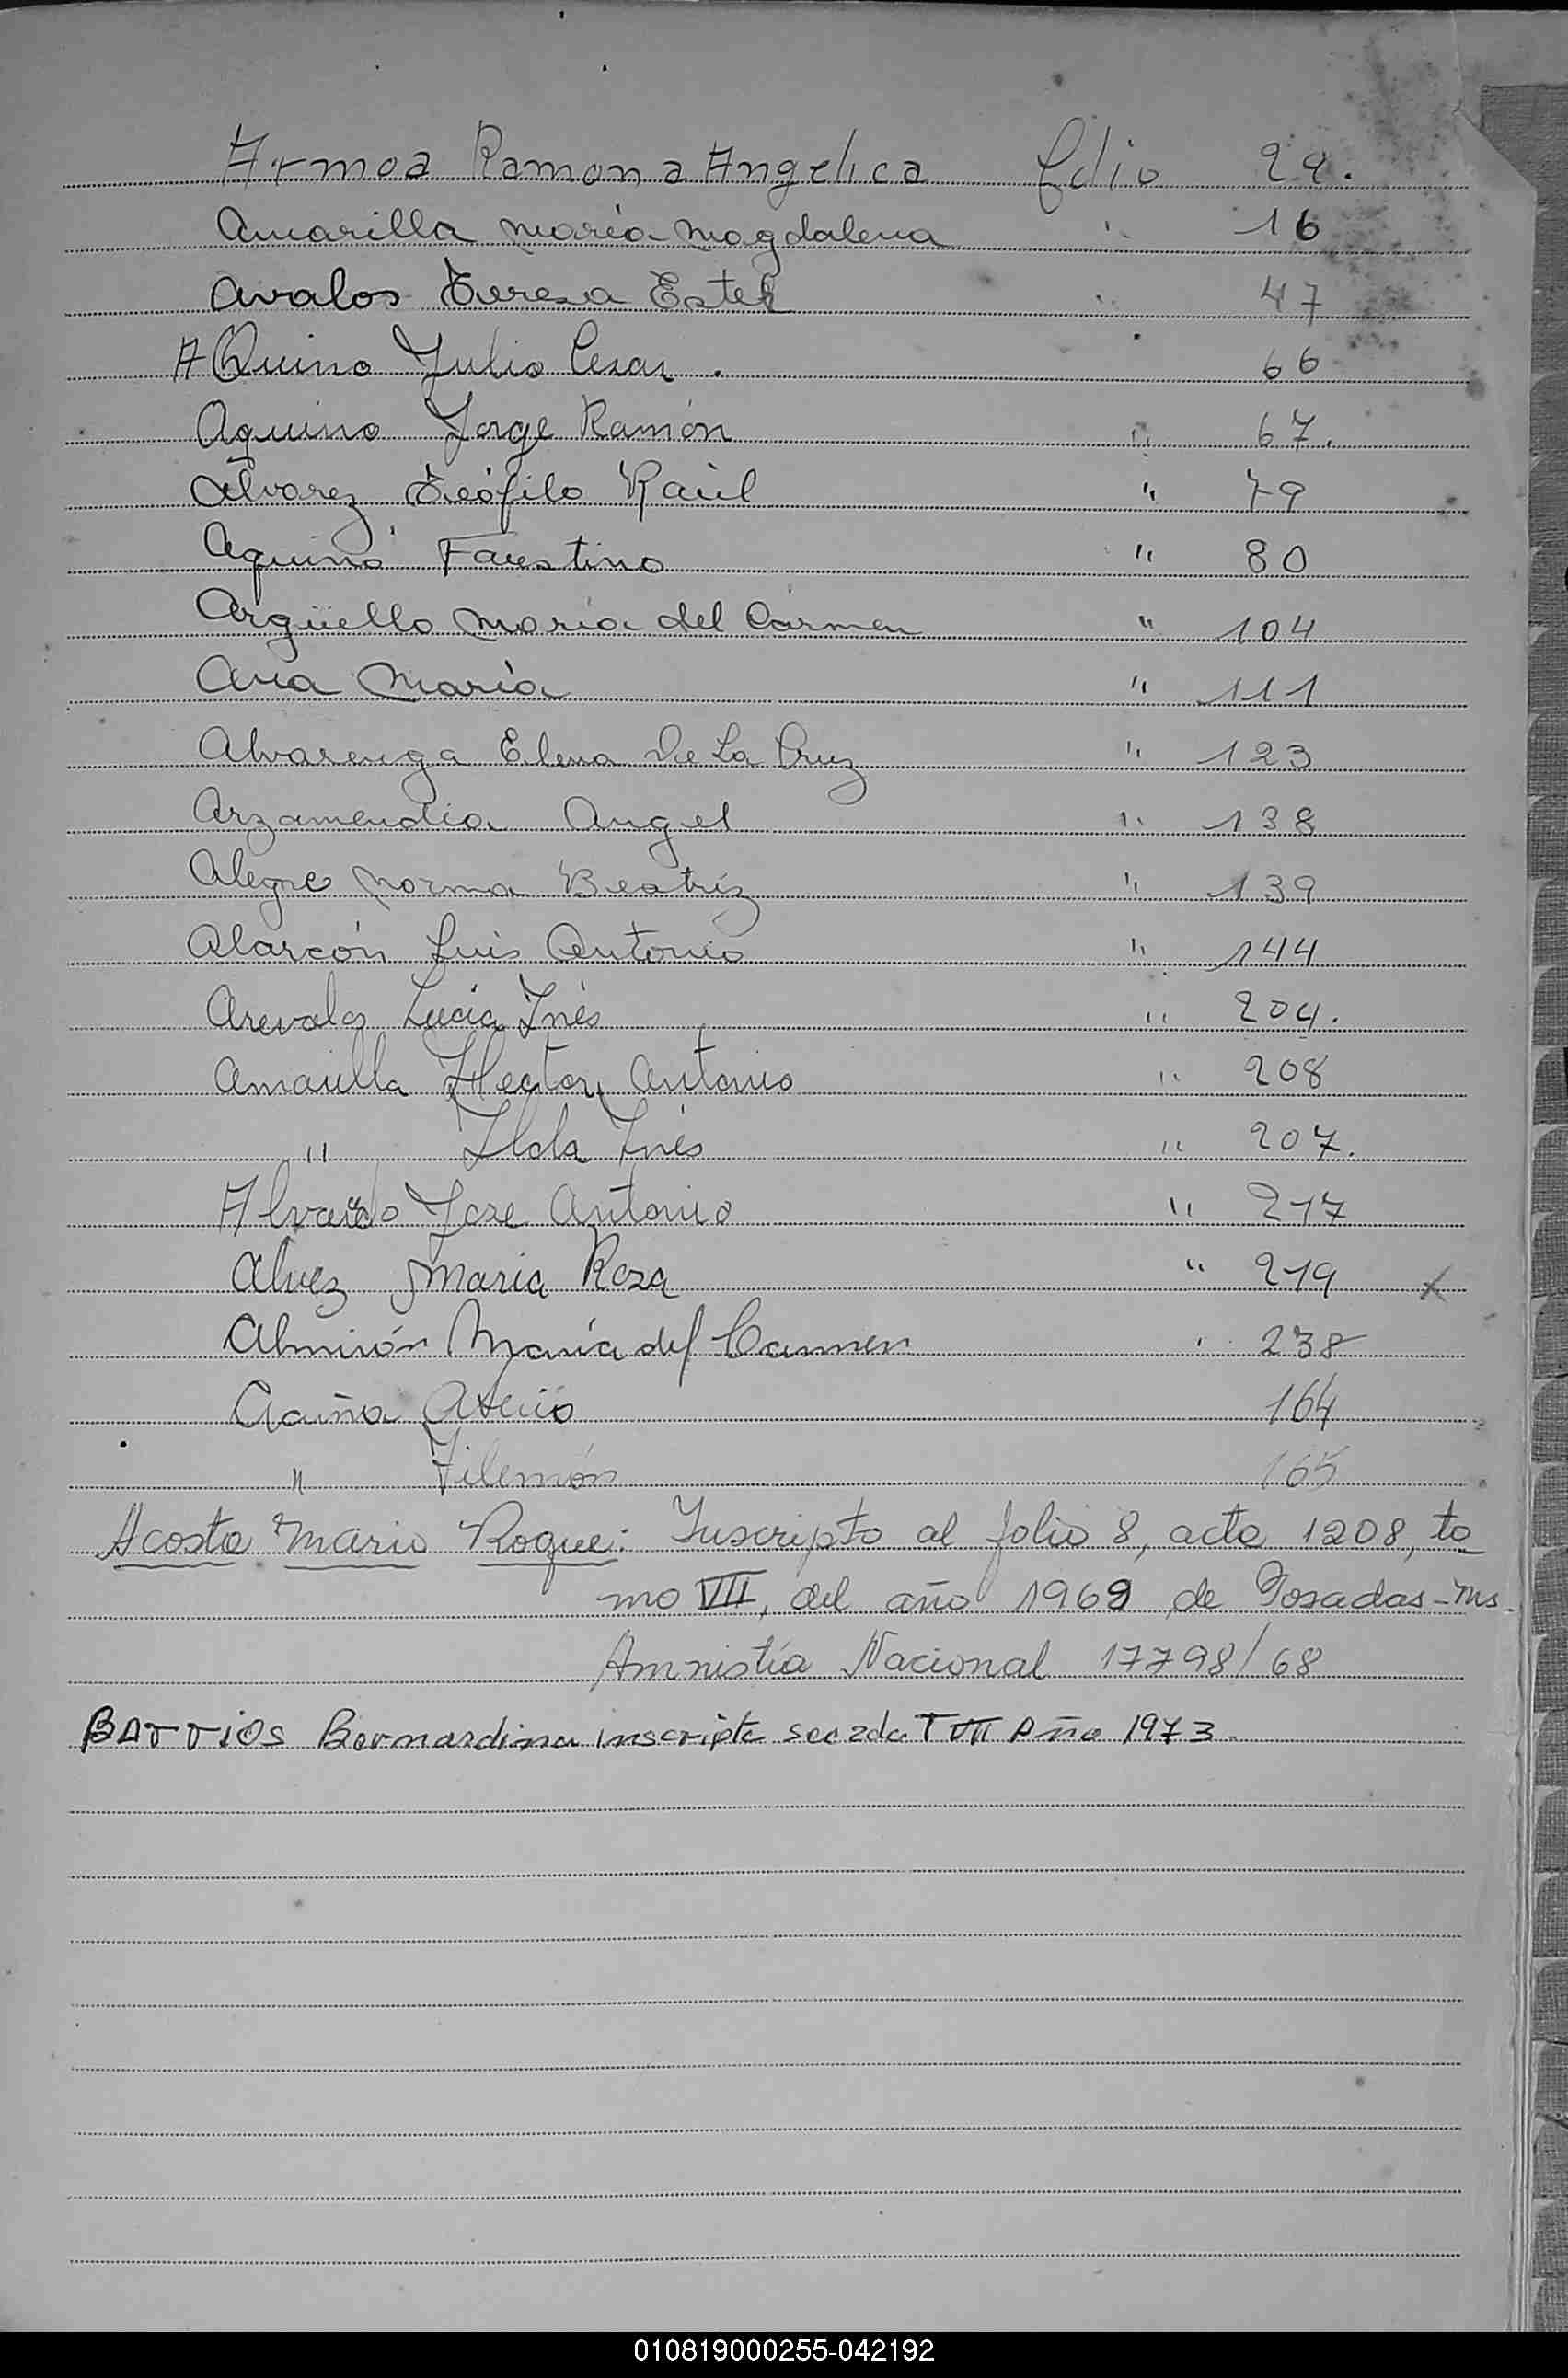 Armoa Ramona Angelica folio 29.
Amarilla María Magdalena " 16
Avalos Teresa Ester " 47
AQuino Julio Cesar . " 66
Aquino Jorge Ramón " 67.
Alvarez Teófilo Raúl " 79
Aquino Faustino " 80
Argüello María del Carmen " 104
Ana María " 111
Alvarenga Elena De La Cruz " 123
Arzamendia Angel " 138
Alegre Norma Beatríz " 139
Alarcón Luis Antonio " 144
Arevalos Lucia Inés " 204.
Amarilla Hector Antonio " 208
" Ilda Inés " 207.
Jose Antonio " 217
Alvez Maria Rosa " 219 x
Almirón María del Carmen " 238
Acuña 164
" Filemón 165
Acosta Mario Roque: Inscripto al folio 8, acta 1208, to
mo VII, del año 1969 de Posadas-Ms.
Amnistía Nacional 17798/68
BArriOs Bernardina inscripta sec 2da T VII Año 1973.
010819000255-042192